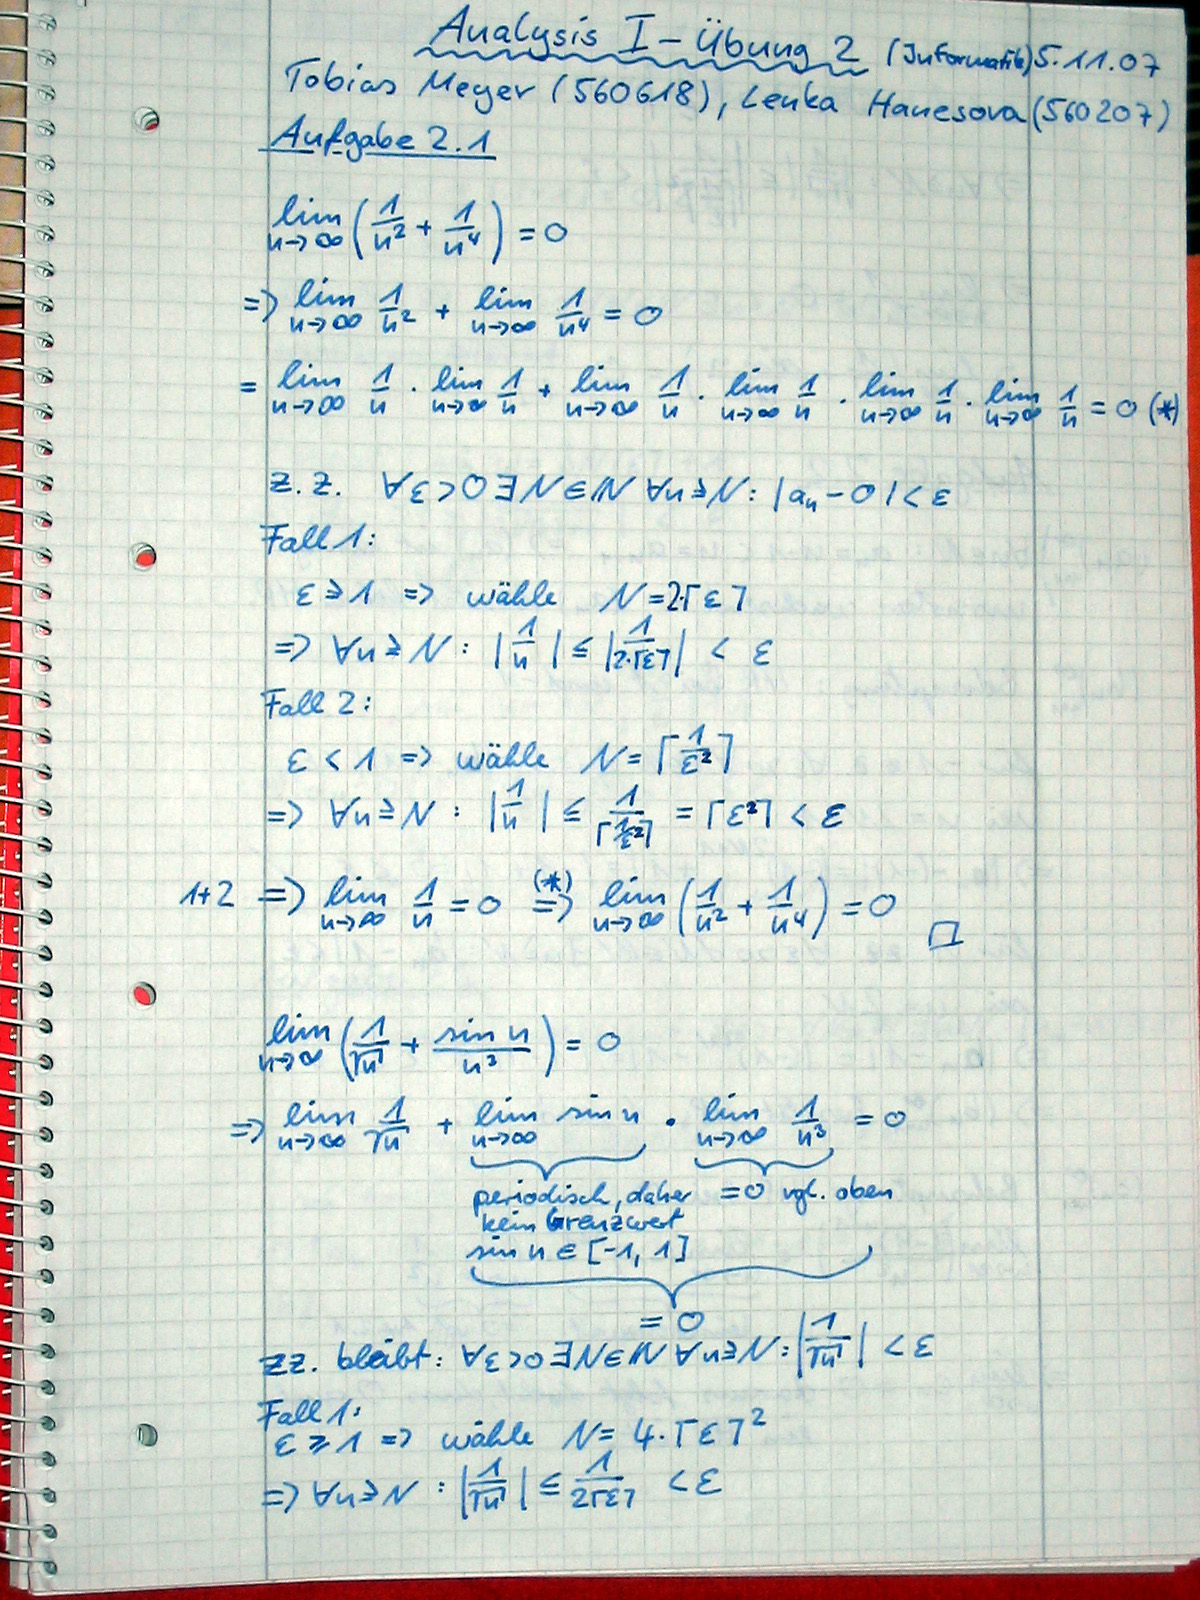 Analysis I - Übung 2 (Informatik) 5.11.07
Tobias Meyer (560618), Lenka Hanesova (560207)
Aufgabe 2.1
lim n→∞ (1/n² + 1/n⁴) = 0
=> lim n→∞ 1/n² + lim n→∞ 1/n⁴ = 0
= lim n→∞ 1/n · lim n→∞ 1/n + lim n→∞ 1/n · lim n→∞ 1/n · lim n→∞ 1/n · lim n→∞ 1/n = 0 (*)
z.z. ∀ε>0 ∃N∈ℕ ∀n≥N: |aₙ - 0| < ε
Fall 1:
ε ≥ 1 => wähle N = 2·⌈ε⌉
=> ∀n ≥ N : |1/n| ≤ |1/(2·⌈ε⌉)| < ε
Fall 2:
ε < 1 => wähle N = ⌈1/ε²⌉
=> ∀n ≥ N : |1/n| ≤ 1/⌈1/ε²⌉ = ⌈ε²⌉ < ε
1+2 => lim n→∞ 1/n = 0 (*) => lim n→∞ (1/n² + 1/n⁴) = 0 □
lim n→∞ (1/√n + sin n/n³) = 0
=> lim n→∞ 1/√n + lim n→∞ sin n · lim n→∞ 1/n³ = 0
periodisch, daher = 0 vgl. oben
kein Grenzwert
sin n ∈ [-1, 1]
= 0
zz. bleibt: ∀ε>0 ∃N∈ℕ ∀n≥N: |1/√n| < ε
Fall 1:
ε ≥ 1 => wähle N = 4·⌈ε⌉²
=> ∀n ≥ N : |1/√n| ≤ 1/(2⌈ε⌉) < ε